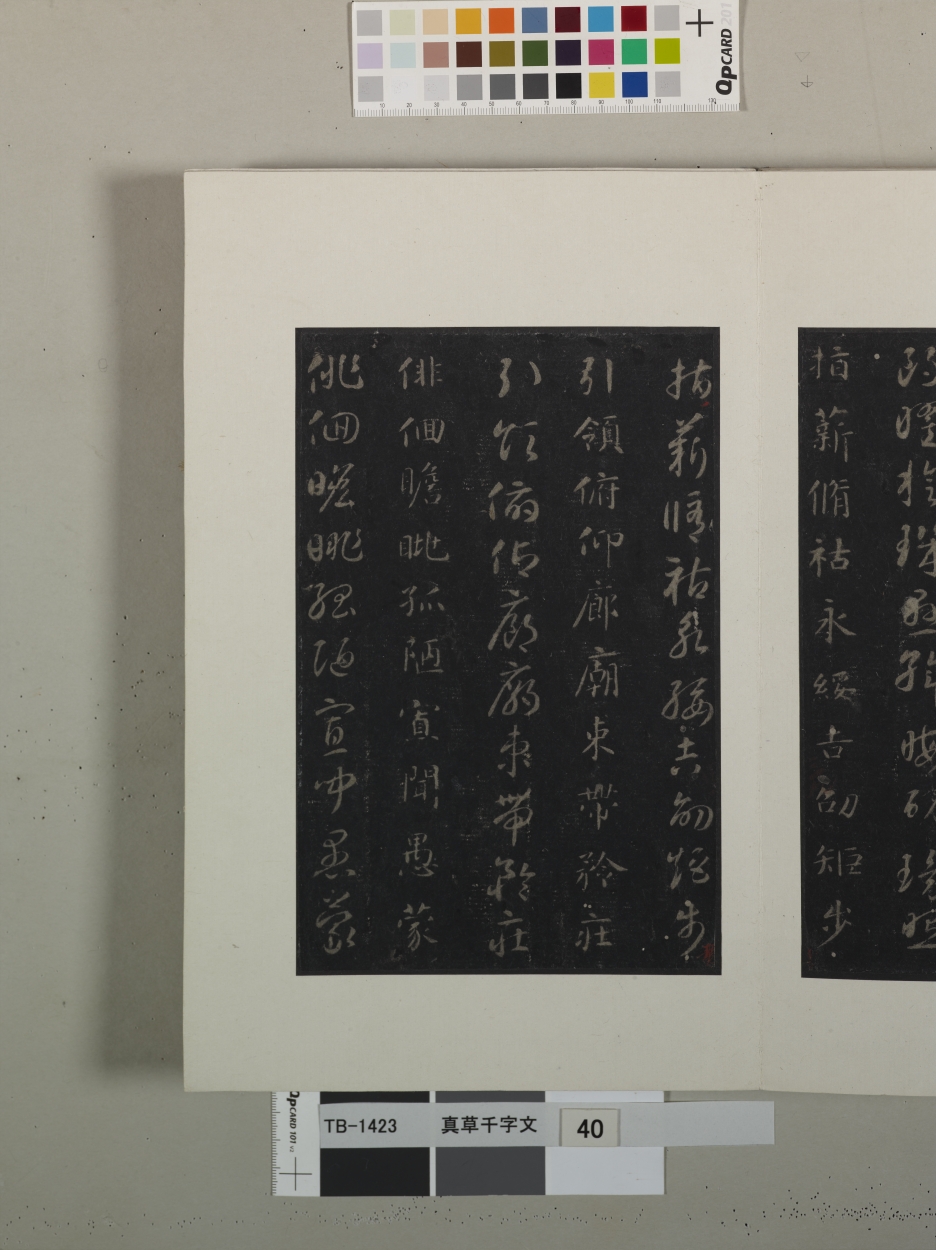 QPCARD 201
朗曜旋璣懸斡晦魄環照
指薪脩祜永綏吉劭矩步
指薪脩祜永綏吉劭矩步
引領俯仰廊廟束帶矜莊
引領俯仰廊廟束帶矜莊
俳佪瞻眺孤陋寡聞愚蒙
俳佪瞻眺孤陋寡聞愚蒙
QPCARD 101
TB-1423 真草千字文 40